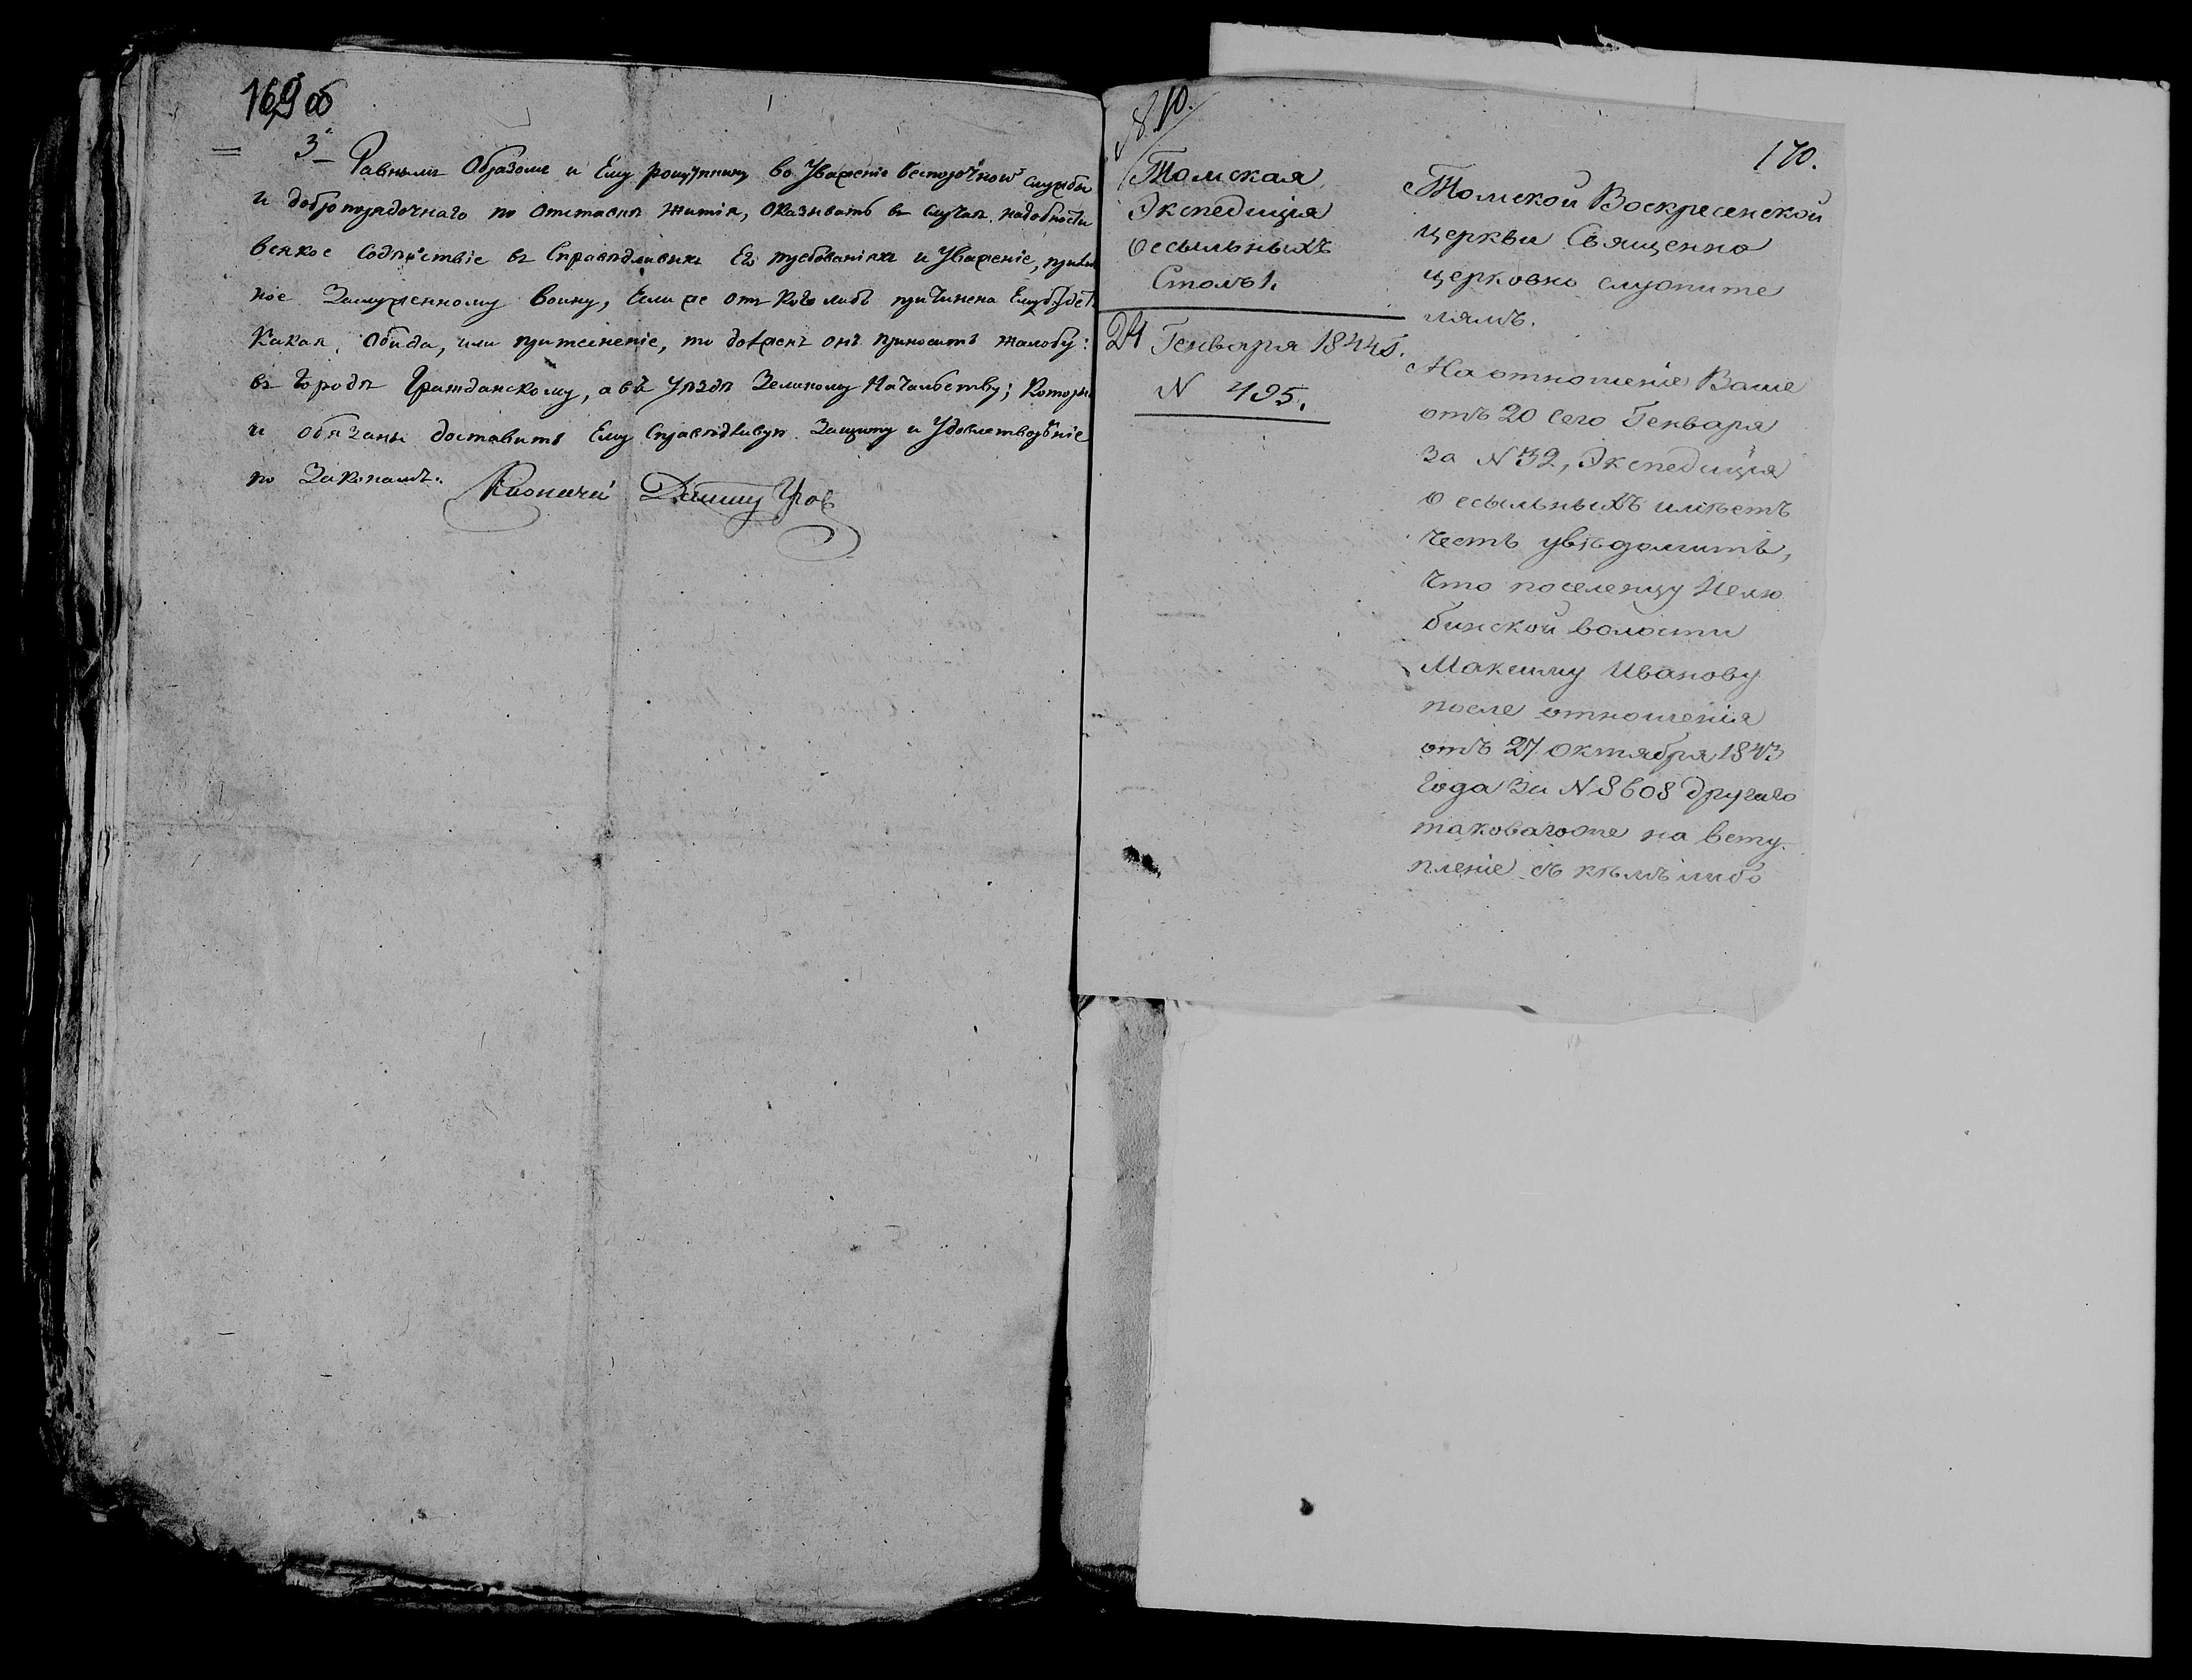 169 об
3. Равнымъ Образомъ и Ему во Уваженіе безпорочной службы
и добропорядочнаго по отставкѣ житія, оказывать въ случаѣ надобности
всякое содѣйствіе въ Справѣдливыхъ Его требованіяхъ и Уваженіе,
ное Заслуженному воину, Если же отъ кого либо причинена Ему будетъ
Какая Обида, или притѣсненіе, то долженъ онъ приносить жалобу:
въ Городѣ Гражданскому, а въ Уѣздѣ Земскому Начальству; Которы
и обязаны доставить Ему Справѣдливую Защиту и Удовлетвореніе
по Законамъ.
10.
170.
Томская
Экспедиція
о ссыльныхъ
Столъ 1.
24 Генваря 1844 г.
N 495.
Томской Воскресенской
церкви Священно
церковно служите
лямъ.
На отношеніе Ваше
отъ 20 сего Генваря
за N 32, Экспедиція
о ссыльныхъ имѣетъ
честь увѣдомить,
что поселенцу Нелю
бинской волости
Максиму Иванову
после отношенія
отъ 27 октября 1843
года за N 8608 другаго
таковагоже на всту
пленіе съ кѣмъ либо